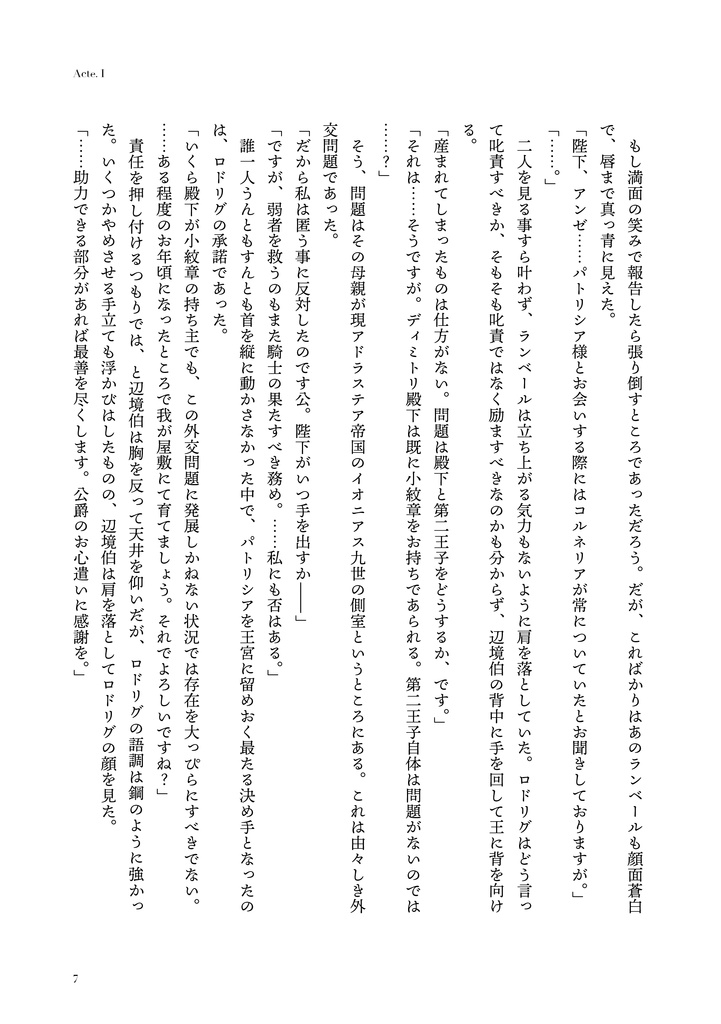 Acte. I
もし満面の笑みで報告したら張り倒すところであっただろう。だが、こればかりはあのランベールも顔面蒼白
で、唇まで真っ青に見えた。
「陛下、アンゼ……パトリシア様とお会いする際にはコルネリアが常についていたとお聞きしておりますが。」
「……。」
二人を見る事すら叶わず、ランベールは立ち上がる気力もないように肩を落としていた。ロドリグはどう言っ
て叱責すべきか、そもそも叱責ではなく励ますべきなのかも分からず、辺境伯の背中に手を回して王に背を向け
る。
「産まれてしまったものは仕方がない。問題は殿下と第二王子をどうするか、です。」
「それは……そうですが。ディミトリ殿下は既に小紋章をお持ちであられる。第二王子自体は問題がないのでは
……？」
そう、問題はその母親が現アドラステア帝国のイオニアス九世の側室というところにある。これは由々しき外
交問題であった。
「だから私は匿う事に反対したのです公。陛下がいつ手を出すか――」
「ですが、弱者を救うのもまた騎士の果たすべき務め。……私にも否はある。」
誰一人うんともすんとも首を縦に動かさなかった中で、パトリシアを王宮に留めおく最たる決め手となったの
は、ロドリグの承諾であった。
「いくら殿下が小紋章の持ち主でも、この外交問題に発展しかねない状況では存在を大っぴらにすべきでない。
……ある程度のお年頃になったところで我が屋敷にて育てましょう。それでよろしいですね？」
責任を押し付けるつもりでは、と辺境伯は胸を反って天井を仰いだが、ロドリグの語調は鋼のように強かっ
た。いくつかやめさせる手立ても浮かびはしたものの、辺境伯は肩を落としてロドリグの顔を見た。
「……助力できる部分があれば最善を尽くします。公爵のお心遣いに感謝を。」
7